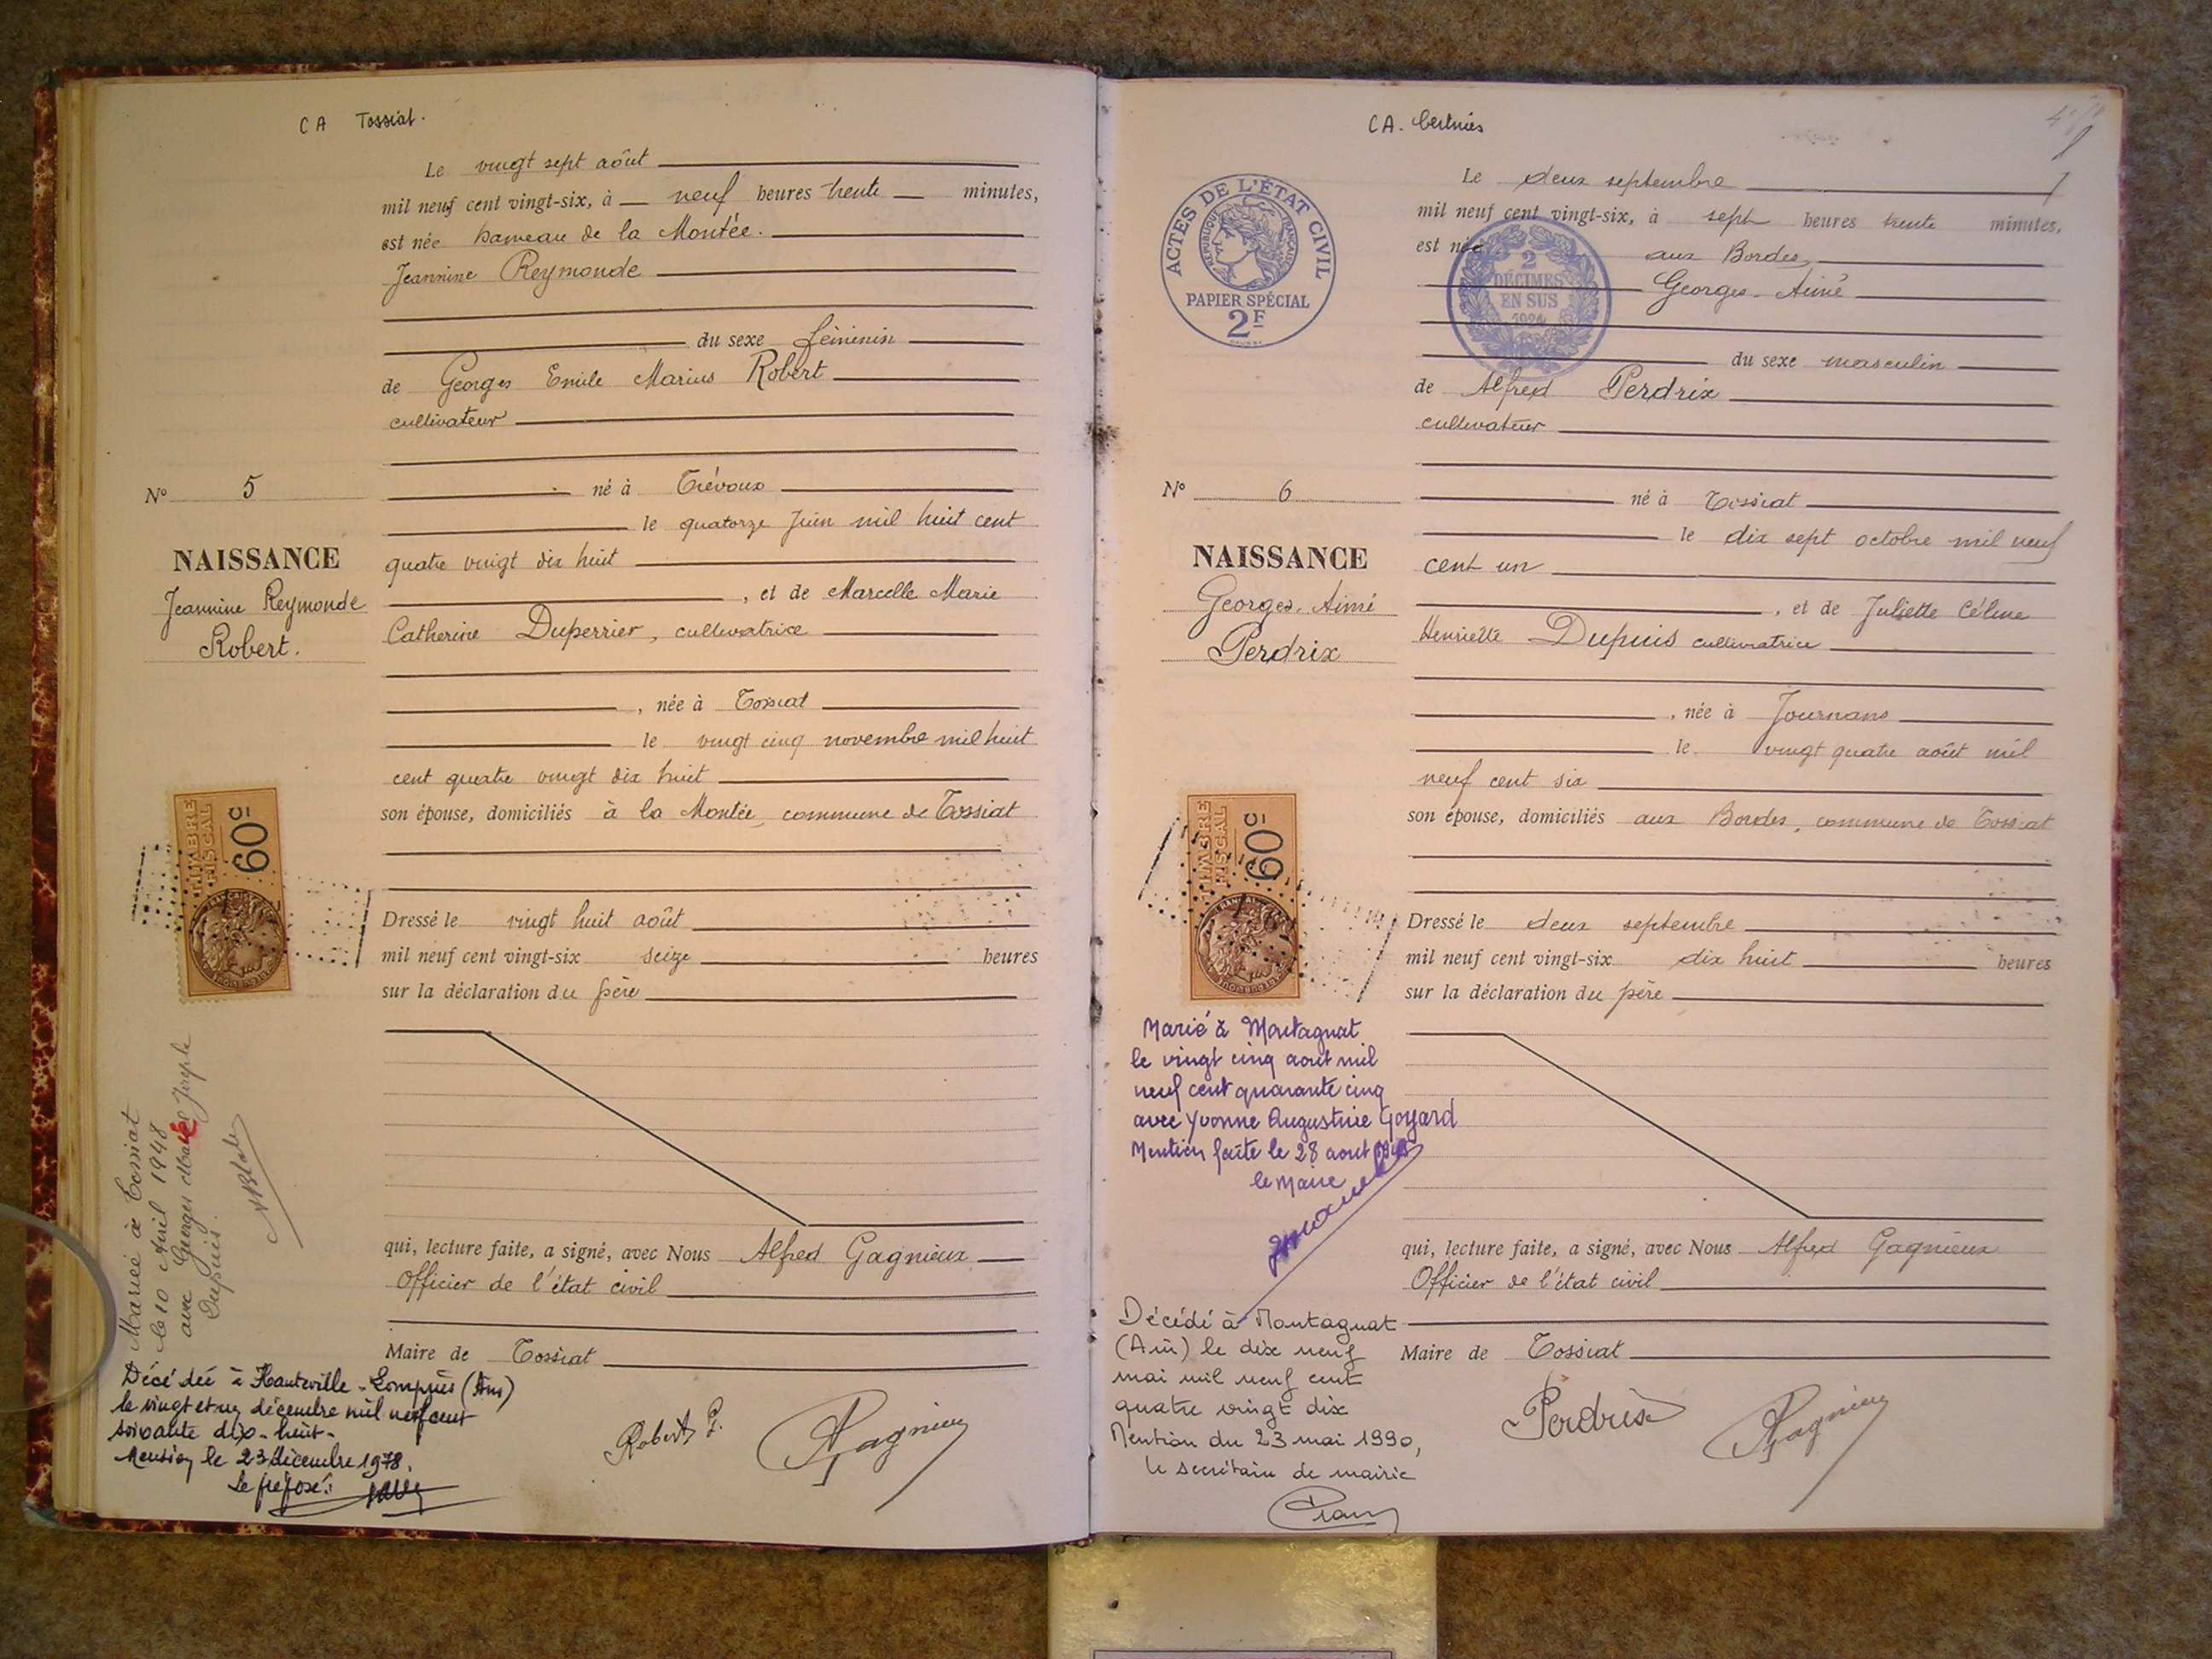 CA Tossiat.
Le vingt sept août
mil neuf cent vingt-six, à neuf heures trente minutes,
est née hameau de la Montée.
Jeannine Reymonde
du sexe féminin
de Georges Emile Marius Robert
cultivateur
né à Trévoux
le quatorze Juin mil huit cent
quatre vingt dix huit
, et de Marcelle Marie
Catherine Duperrier, cultivatrice
, née à Tossiat
le vingt cinq novembre mil huit
cent quatre vingt dix huit
son épouse, domiciliés à la Montée, commune de Tossiat
Dressé le vingt huit août
mil neuf cent vingt-six seize heures
sur la déclaration du père
qui, lecture faite, a signé, avec Nous Alfred Gagnieux
Officier de l'état civil
Maire de Tossiat
Robert G.
AGagnieux
No 5
NAISSANCE
Jeannine Reymonde
Robert.
TIMBRE
FISCAL
60c
Mariée à Tossiat
le 10 Avril 1948
avec Georges Joseph
Dupuis.
Décédée à Hauteville-Lompnès (Ain)
le vingt et un décembre mil neuf cent
soixante dix-huit-
Mention le 23 décembre 1978.
Le préposé:
CA.
Le deux septembre
mil neuf cent vingt-six, à sept heures trente minutes,
est né aux Bordes
Georges-Aimé
du sexe masculin
de Alfred Perdrix
cultivateur
né à Tossiat
le dix sept octobre mil neuf
cent un
, et de Juliette Céline
Henriette Dupuis cultivatrice
, née à Journans
le vingt quatre août mil
neuf cent six
son épouse, domiciliés aux Bordes, commune de Tossiat
Dressé le deux septembre
mil neuf cent vingt-six dix huit heures
sur la déclaration du père
qui, lecture faite, a signé, avec Nous Alfred Gagnieux
Officier de l'état civil
Maire de Tossiat
Perdrix
AGagnieux
ACTES DE L'ÉTAT CIVIL
RÉPUBLIQUE FRANÇAISE
PAPIER SPÉCIAL
2F
2
DÉCIMES
EN SUS
1924
No 6
NAISSANCE
Georges-Aimé
Perdrix
TIMBRE
FISCAL
60c
Marié à Montagnat
le vingt cinq aout mil
neuf cent quarante cinq
avec Yvonne Augustine Goyard
Mention faite le 28 aout
le Maire
Décédé à Montagnat
(Ain) le dix neuf
mai mil neuf cent
quatre vingt dix
Mention du 23 mai 1990,
le secrétaire de mairie